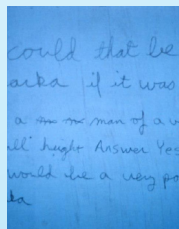 could that be
arka if it was
a man of a v
ll height Answer Yes
would be a very po
ka